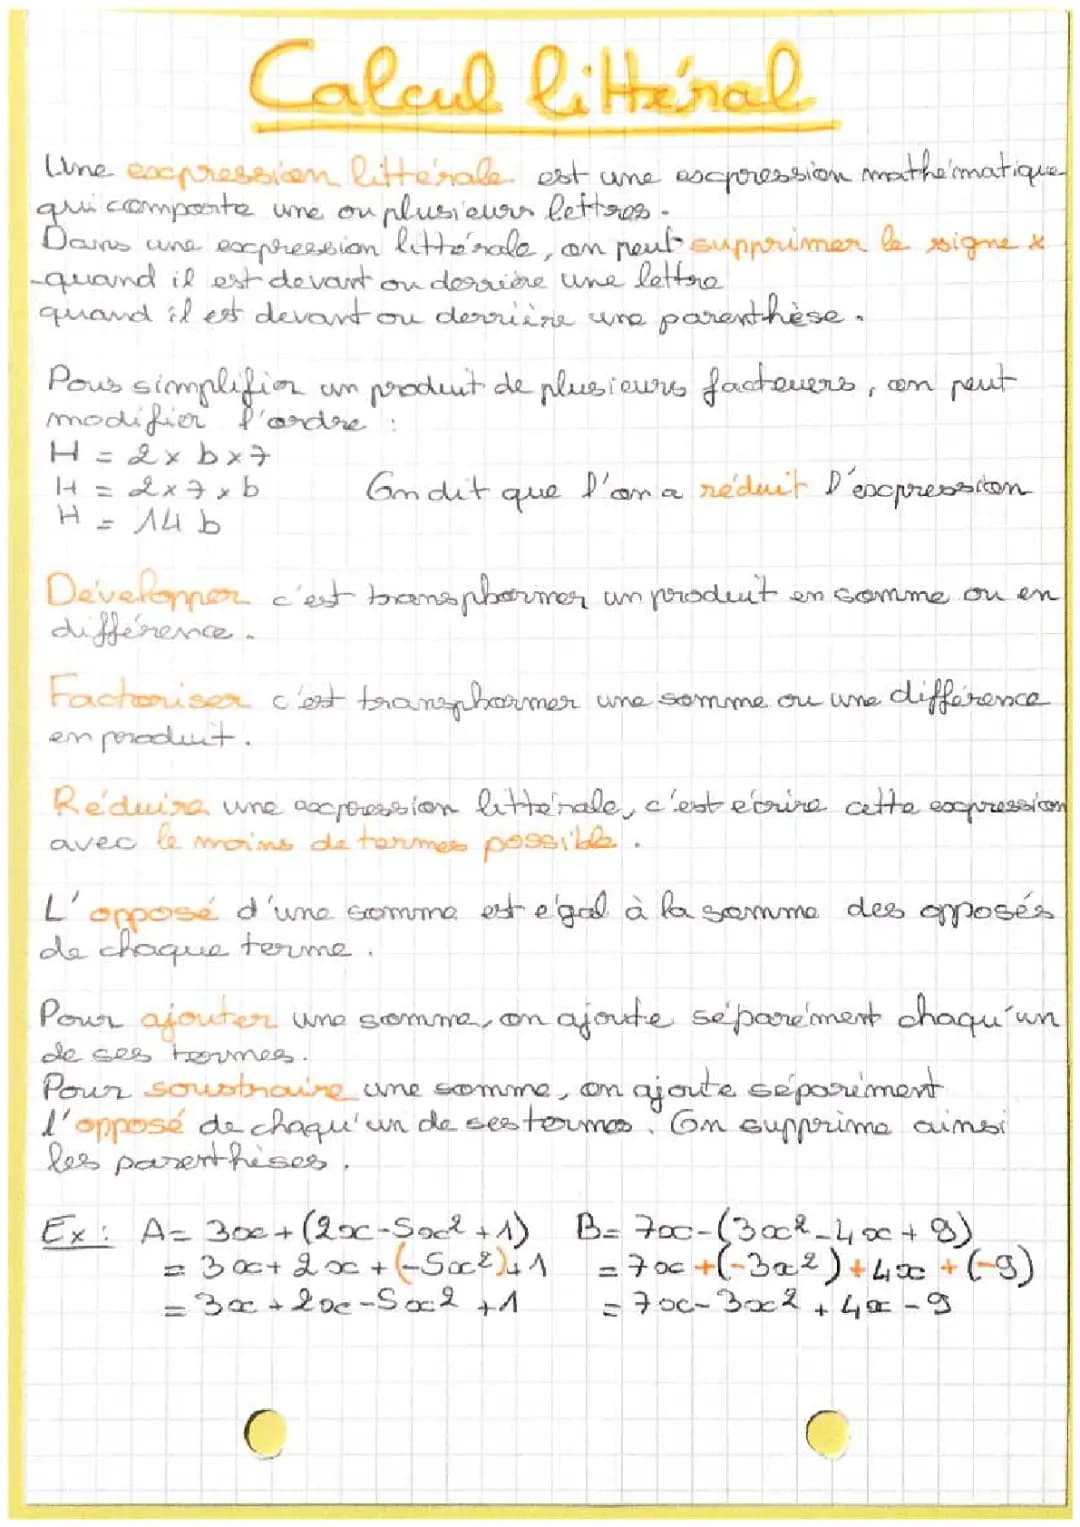 Calcul littéral
Une expression littérale est une expression mathématique
qui comporte une ou plusieurs lettres.
Dans une expression littérale, on peut supprimer le signe x
-quand il est devant ou derrière une lettre
quand il est devant ou derrière une parenthèse.
Pour simplifier un produit de plusieurs facteuers, on peut
modifier l'ordre :
H = 2 x b x 7
H = 2 x 7 x b
On dit que l'on a réduit l'expression
H = 14 b
Développer c'est transphormer un produit en somme ou en
différence.
Factoriser c'est transphormer une somme ou une différence
en produit.
Réduire une expression littérale, c'est écrire cette expression
avec le moins de termes possible.
L'opposé d'une somme est égal à la somme des opposés
de chaque terme.
Pour ajouter une somme, on ajoute séparément chaqu'un
de ses termes.
Pour soustraire une somme, on ajoute séparément
l'opposé de chaqu'un de ses termes. On supprime ainsi
les parenthèses.
Ex : A = 3x + (2x - 5x² + 1) B = 7x - (3x² - 4x + 9)
= 3x + 2x + (-5x²) + 1 = 7x + (-3x²) + 4x + (-9)
= 3x + 2x - 5x² + 1 = 7x - 3x² + 4x - 9